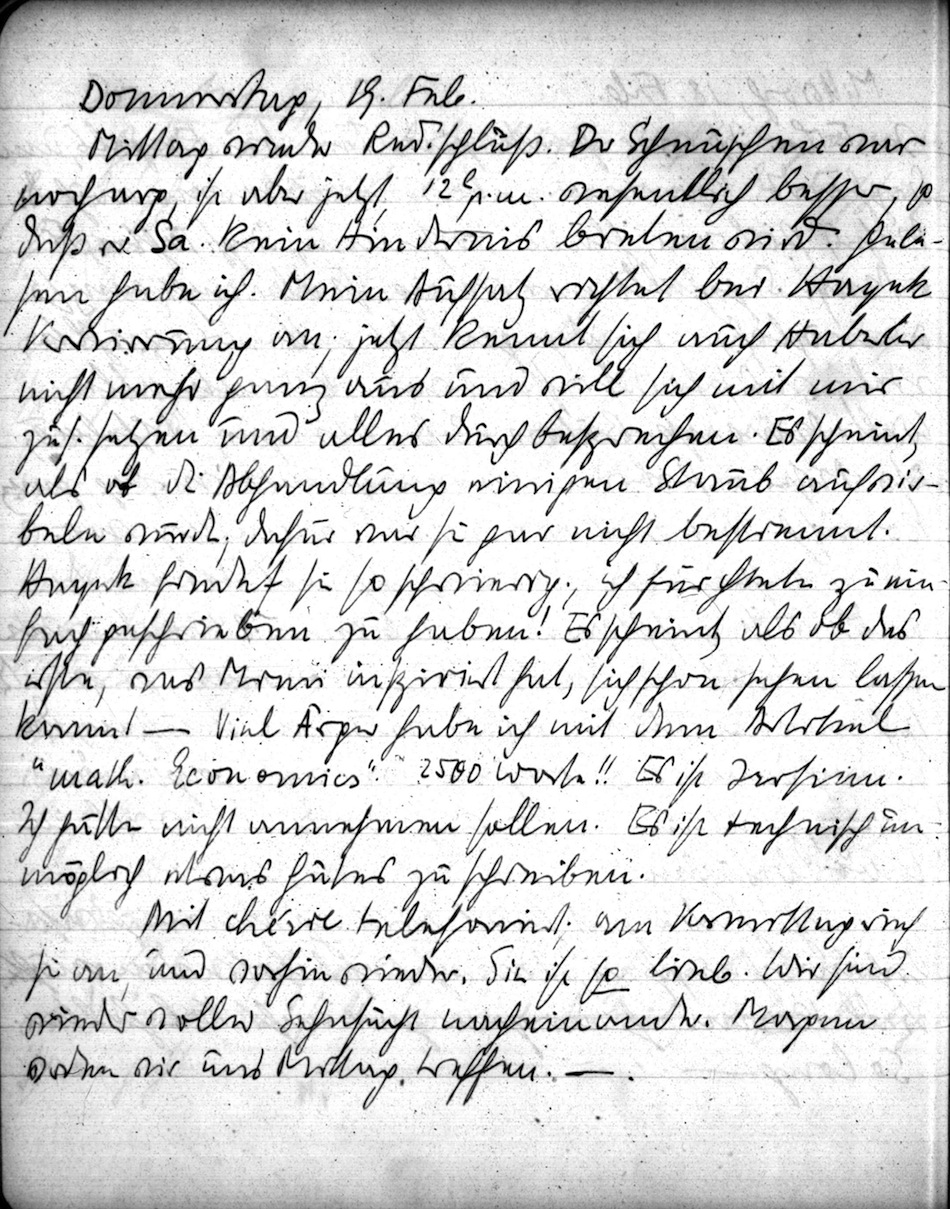 Donnerstag, 19. Feb.
Mittag wieder Red.schluß. Der Schnupfen war
noch arg, ist aber jetzt, 12h p.m. wesentlich besser, so
daß er Sa. kein Hindernis bieten wird. Gele-
sen habe ich. Mein Aufsatz richtet bei Hayek
Verwirrung an; jetzt kennt sich auch Haberler
nicht mehr ganz aus und will sich mit mir
zus. setzen und alles durchbesprechen. Es scheint,
als ob die Abhandlung einigen Staub aufwir-
beln würde; dafür war sie gar nicht bestimmt.
Hayek findet sie so schwierig; ich fürchtete zu ein-
fach geschrieben zu haben! Es scheint, als ob das
erste, was inspiriert hat, sich schon sehen lassen
kann! — Viel Ärger habe ich mit dem Artikel
"math. Economics". 2500 Worte!! Es ist Irrsinn.
Ich hätte nicht annehmen sollen. Es ist technisch un-
möglich etwas Gutes zu schreiben.
Mit chérie telefoniert; am Vormittag rief
sie an, und vorhin wieder. Sie ist so lieb. Wir sind
wieder voller Sehnsucht nacheinander. Morgen
werden wir uns Mittag treffen. —.